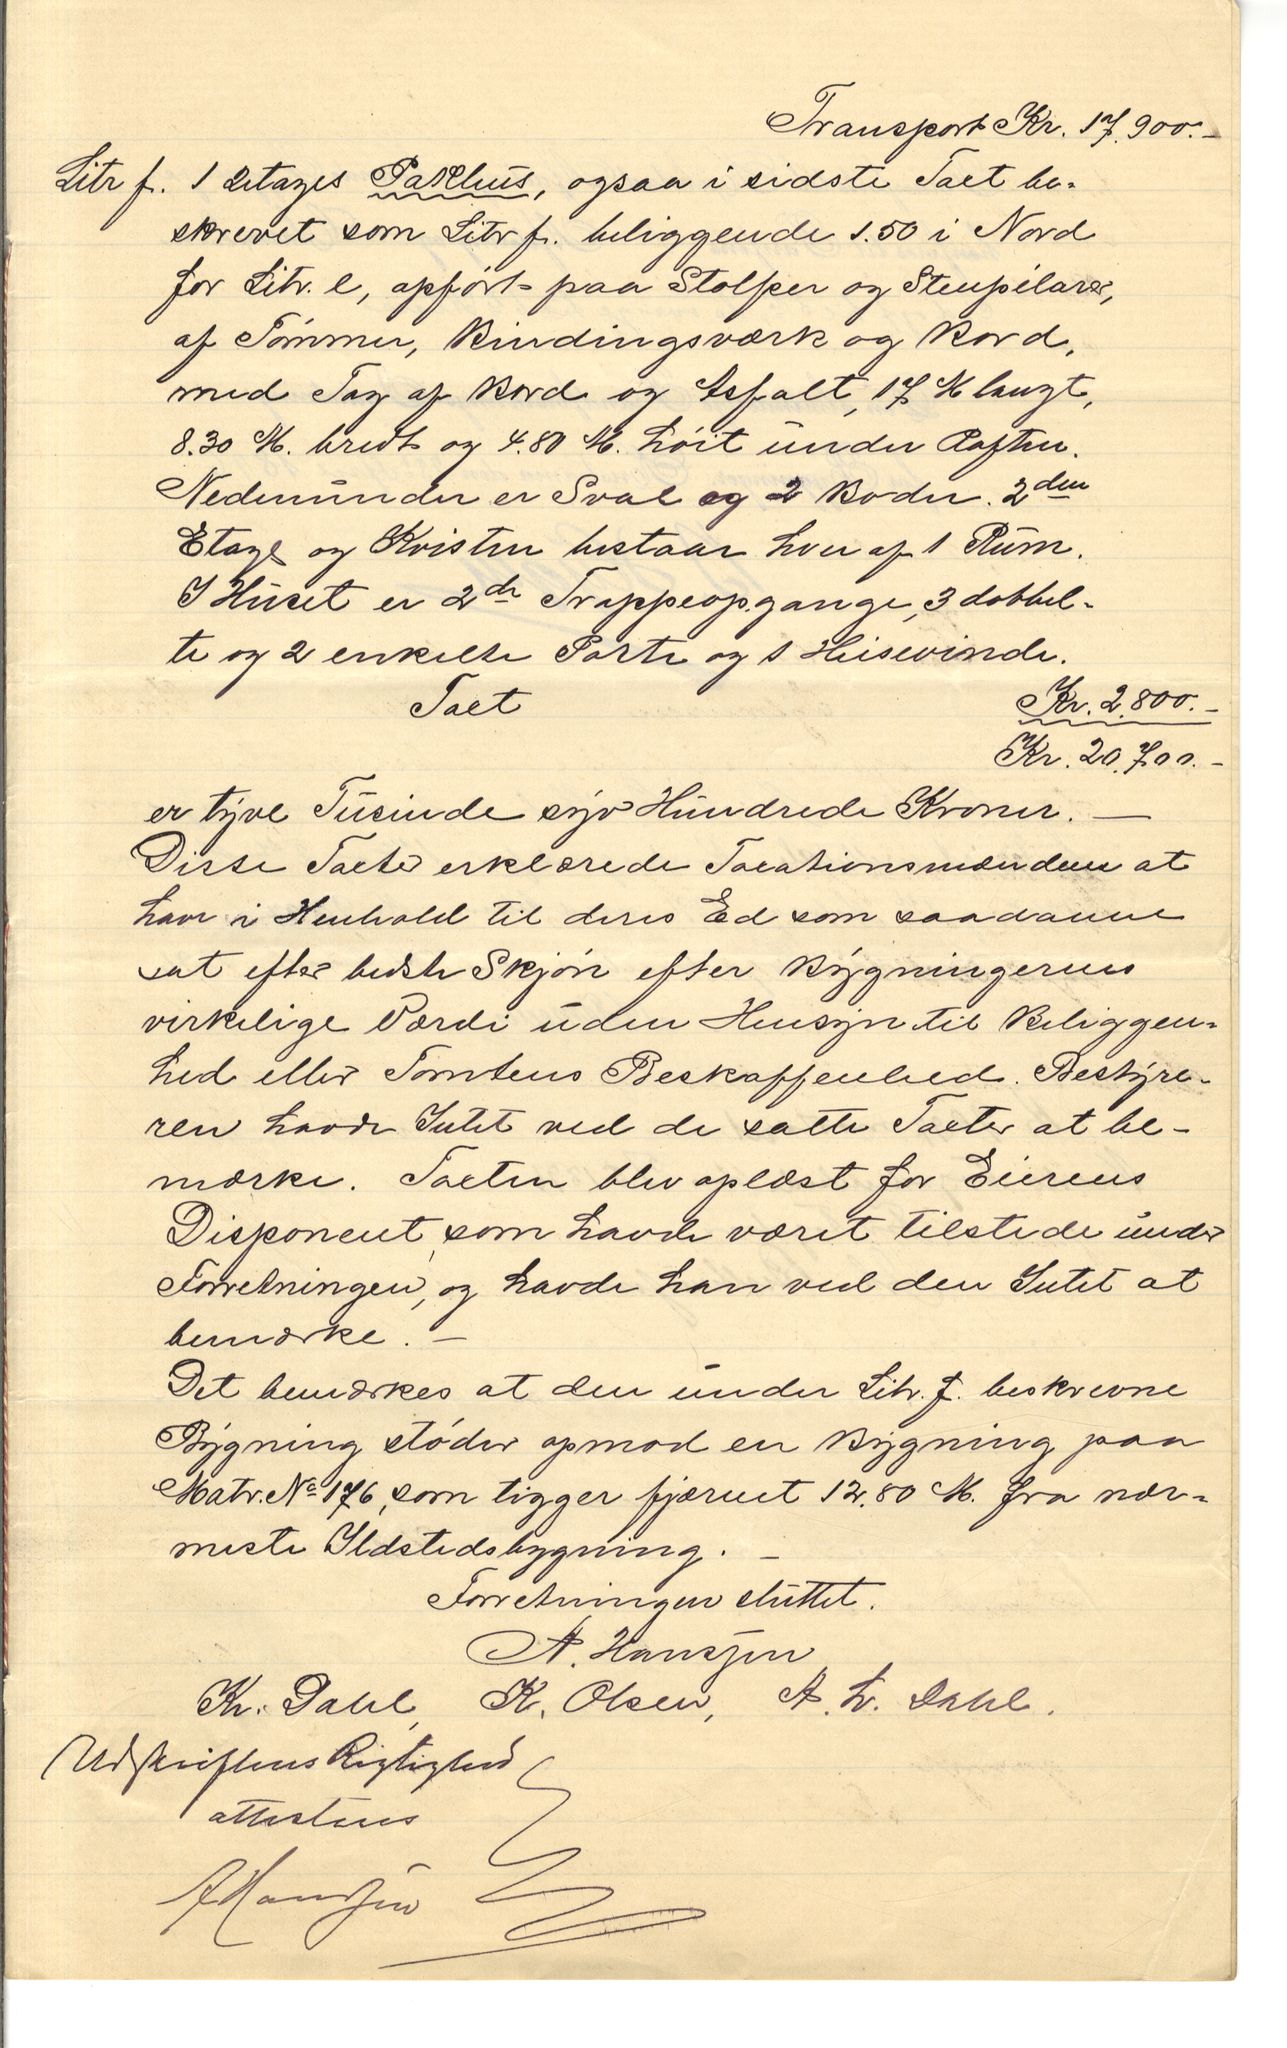 Transport Kr. 17.900.-
Litr f. 1 2etages Pakhus, ogsaa i sidste Taxt be-
skrevet som Litr f. beliggende 1.50 i Nord
for Litr. e, opført paa Stolper og Stenpilarer,
af Tømmer, Bindingsværk og Bord,
med Tag af Bord og Asfalt, 17 M langt,
8.30 M. bredt og 4.80 M. høit under Raften.
Nedenunder er Sval og 2 Boder. 2den
Etage og Kvisten bestaar hver af 1 Rum.
I Huset er 2de Trappeopgange, 3 dobbel-
te og 2 enkelte Porte og 1 Heisevinde.
Taxt Kr. 2.800.-
Kr. 20.700.-
er tyve Tusinde syv Hundrede Kroner. —
Disse Taxter erklærede Taxationsmændene at
have i Henhold til deres Ed som saadanne
sat efter bedste Skjøn efter Bygningernes
virkelige Værdi uden Hensyn til Beliggen-
hed eller Tomtens Beskaffenhed. Bestyre-
ren havde Intet ved de satte Taxter at be-
mærke. Taxten blev oplæst for Eierens
Disponent, som havde været tilstede under
Forretningen, og havde han ved den Intet at
bemærke. —
Det bemærkes at den under Litr. f. beskrevne
Bygning støder opmod en Bygning paa
Matr. No 176, som ligger fjernet 12.80 M. fra nær-
meste Ildstedsbygning. —
Forretningen sluttet.
A. Hanssen
Kr. Dahl, K. Olsen, A. L. Dahl.
Udskriftens Rigtighed
attesteres
A Hanssen